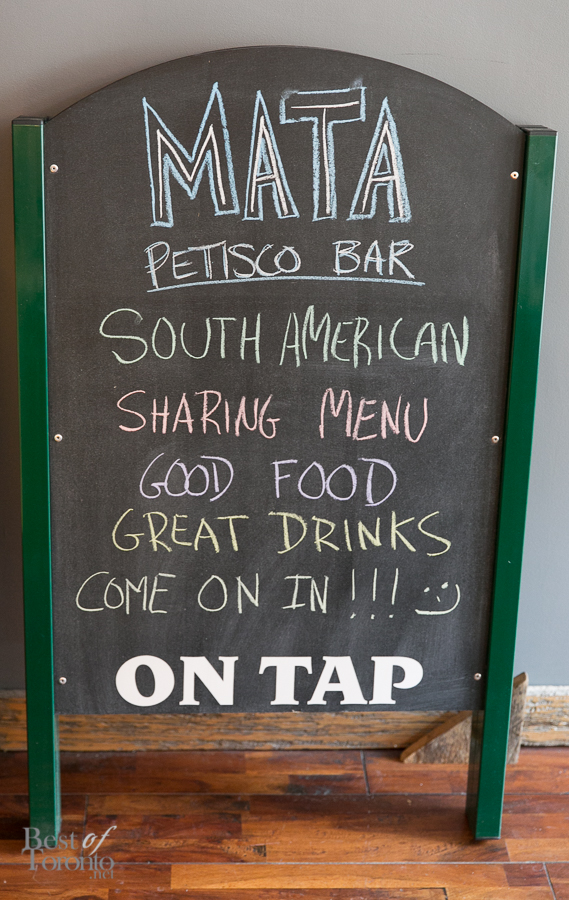 MATA
PETISCO BAR
SOUTH AMERICAN
SHARING MENU
GOOD FOOD
GREAT DRINKS
COME ON IN !!!
ON TAP
Best of
Toronto.net